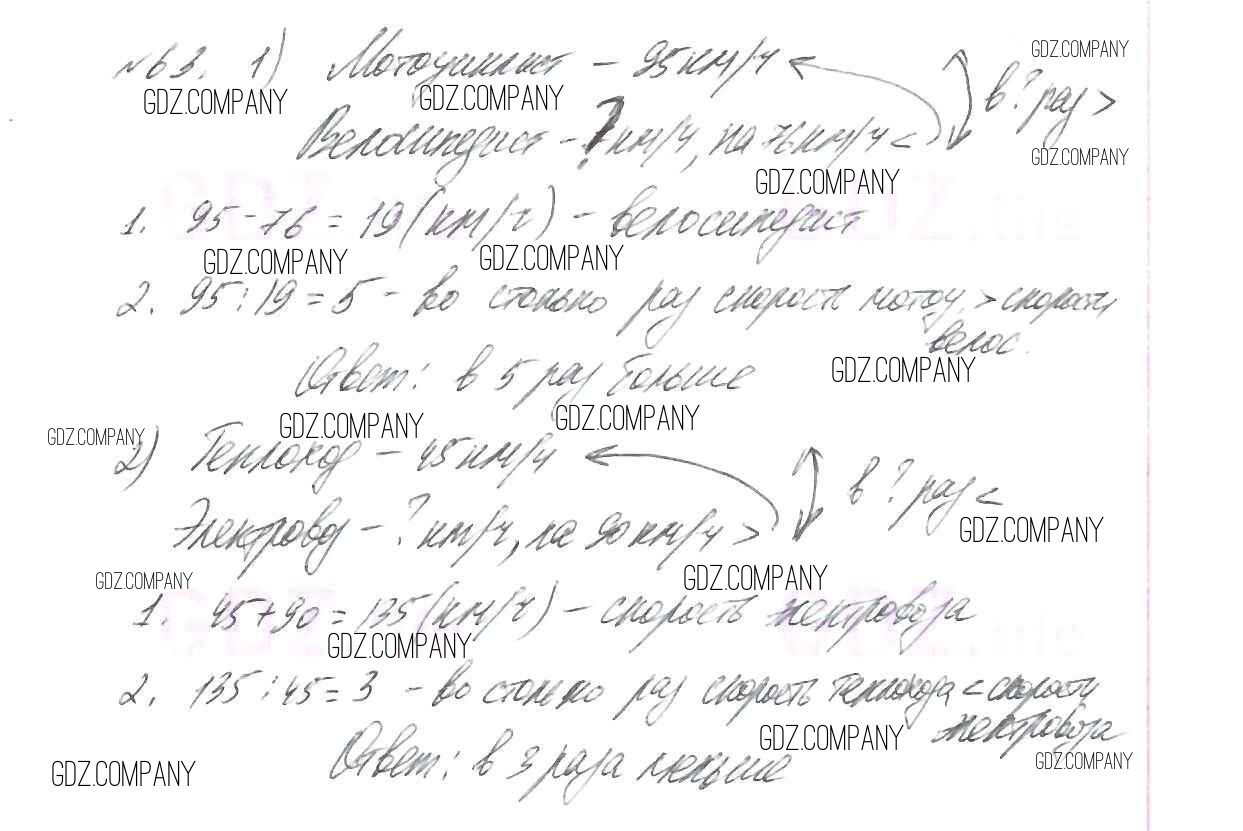 №63. 1) Мотоциклист – 95 км/ч в ? раз >
GDZ.COMPANY
GDZ.COMPANY GDZ.COMPANY
Велосипедист – ? км/ч, на 76 км/ч <
GDZ.COMPANY
GDZ.COMPANY
1. 95 – 76 = 19 (км/ч) – велосипедист
GDZ.COMPANY GDZ.COMPANY
2. 95 : 19 = 5 – во столько раз скорость мотоц. > скорости
велос.
Ответ: в 5 раз больше
GDZ.COMPANY
GDZ.COMPANY GDZ.COMPANY
GDZ.COMPANY
2) Теплоход – 45 км/ч в ? раз <
Электровоз – ? км/ч, на 90 км/ч >
GDZ.COMPANY
GDZ.COMPANY GDZ.COMPANY
1. 45 + 90 = 135 (км/ч) – скорость электровоза
GDZ.COMPANY
2. 135 : 45 = 3 – во столько раз скорость теплохода < скорости
электровоза
GDZ.COMPANY
Ответ: в 3 раза меньше
GDZ.COMPANY GDZ.COMPANY